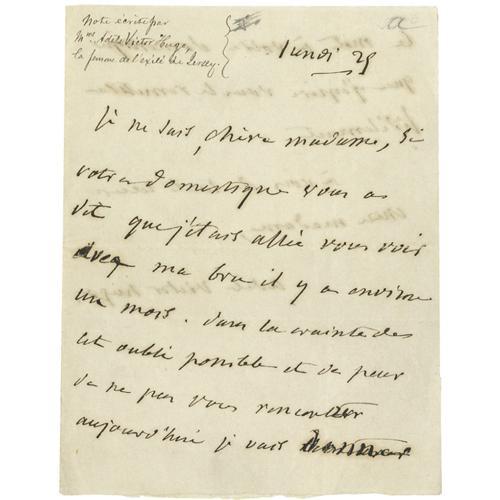 Note écrite par
Mme Adèle Victor Hugo,
la femme de l'exilé de Jersey.
lundi 25
Je ne sais, chère madame, si
votre domestique vous a
dit que j'étais allée vous voir
avec ma bru il y a environ
un mois. dans la crainte de
cet oubli possible et de peur
de ne pas vous rencontrer
aujourd'hui je vais